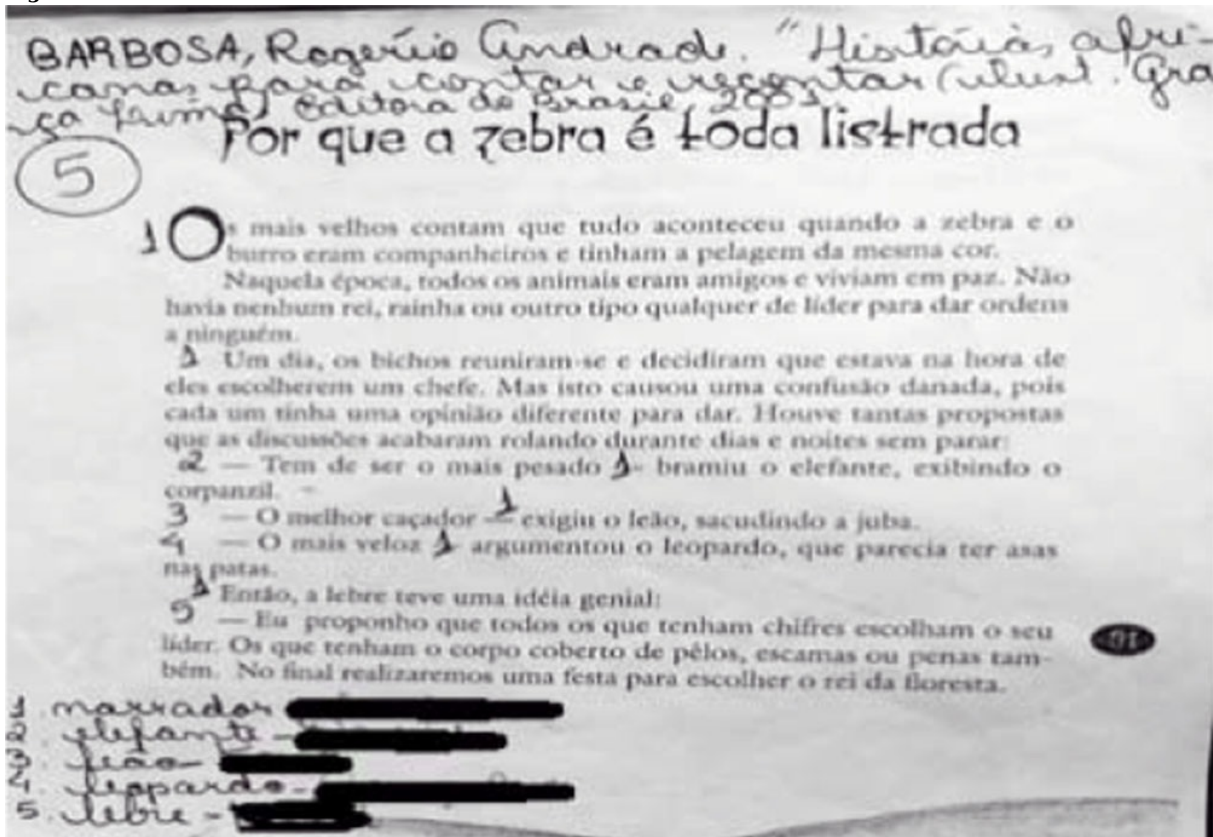 BARBOSA, Rogério Andrade. "Histórias afri-
canas para contar e recontar (ilust. Gra
ça Lima) Editora do Brasil, 2001
Por que a zebra é toda listrada
5
1 Os mais velhos contam que tudo aconteceu quando a zebra e o
burro eram companheiros e tinham a pelagem da mesma cor.
Naquela época, todos os animais eram amigos e viviam em paz. Não
havia nenhum rei, rainha ou outro tipo qualquer de líder para dar ordens
a ninguém.
1 Um dia, os bichos reuniram-se e decidiram que estava na hora de
eles escolherem um chefe. Mas isto causou uma confusão danada, pois
cada um tinha uma opinião diferente para dar. Houve tantas propostas
que as discussões acabaram rolando durante dias e noites sem parar:
2 — Tem de ser o mais pesado 1 - bramiu o elefante, exibindo o
corpanzil.
3 — O melhor caçador 1 — exigiu o leão, sacudindo a juba.
4 — O mais veloz 1 - argumentou o leopardo, que parecia ter asas
nas patas.
1 Então, a lebre teve uma idéia genial:
5 — Eu proponho que todos os que tenham chifres escolham o seu
líder. Os que tenham o corpo coberto de pêlos, escamas ou penas tam-
bém. No final realizaremos uma festa para escolher o rei da floresta.
1. narrador
2. elefante -
3. leão -
4. leopardo -
5. lebre -